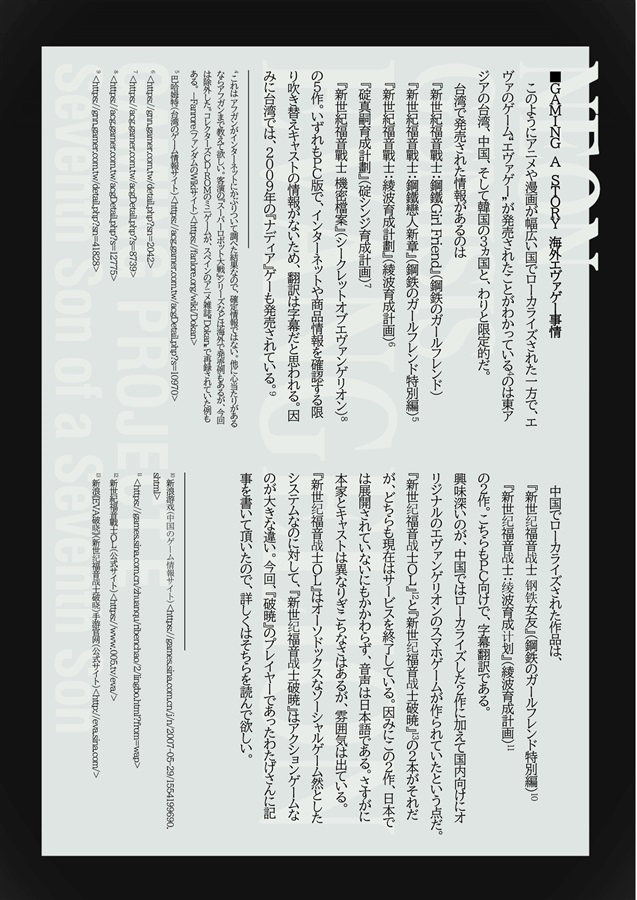 ■GAMING A STORY 海外エヴァゲー事情
このようにアニメや漫画が幅広い国でローカライズされた一方で、エ
ヴァのゲーム“エヴァゲー”が発売されたことがわかっている⁴のは東ア
ジアの台湾、中国、そして韓国の3ヵ国と、わりと限定的だ。
台湾で発売された情報があるのは
『新世紀福音戰士：鋼鐵Girl Friend』（鋼鉄のガールフレンド）
『新世紀福音戰士：鋼鐵戀人新章』（鋼鉄のガールフレンド特別編）⁵
『新世紀福音戰士：綾波育成計劃』（綾波育成計画）⁶
『碇真嗣育成計劃』（碇シンジ育成計画）⁷
『新世紀福音戰士 機密檔案』（シークレットオブエヴァンゲリオン）⁸
の5作。いずれもPC版で、インターネットや商品情報を確認する限
り吹き替えキャストの情報がないため、翻訳は字幕だと思われる。因
みに台湾では、2009年の『ナディア』ゲーも発売されている。⁹
⁴これは、アフガンがインターネットにかじりついて調べた結果なので、確定情報ではない。他に心当たりがある
ならアフガンまで教えて欲しい。客演の『スーパーロボット大戦』シリーズなどは海外で発売例もあるが、今回
は除外した。コレクターズCD-ROMのミニゲームが、スペインのアニメ雑誌“Dokan”で再録されていた例も
ある。―Fanlore（ファンダムのWikiサイト）〈https://fanlore.org/wiki/Dokan〉
⁵巴哈姆特（台湾のゲーム情報サイト）〈https://acg.gamer.com.tw/acgDetail.php?s=10970〉
⁶〈https://gnn.gamer.com.tw/detail.php?sn=2042〉
⁷〈https://acg.gamer.com.tw/acgDetail.php?s=8739〉
⁸〈https://acg.gamer.com.tw/acgDetail.php?s=12775〉
⁹〈https://gnn.gamer.com.tw/detail.php?sn=41828〉
中国でローカライズされた作品は、
『新世纪福音战士：钢铁女友』（鋼鉄のガールフレンド特別編）¹⁰
『新世纪福音战士：绫波育成计划』（綾波育成計画）¹¹
の2作。こちらもPC向けで、字幕翻訳である。
興味深いのが、中国ではローカライズした2作に加えて国内向けにオ
リジナルのエヴァンゲリオンのスマホゲームが作られていたという点だ。
『新世纪福音战士OL』¹²と『新世纪福音战士破晓』¹³の2本がそれだ
が、どちらも現在はサービスを終了している。因みにこの2作、日本で
は展開されていないにもかかわらず、音声は日本語である。さすがに
本家とキャストは異なりぎこちなさはあるが、雰囲気は出ている。
『新世纪福音战士OL』はオーソドックスなソーシャルゲーム然とした
システムなのに対して、『新世纪福音战士破晓』はアクションゲームな
のが大きな違い。今回、『破曉』のプレイヤーであったわたげさんに記
事を書いて頂いたので、詳しくはそちらを読んで欲しい。
¹⁰新浪游戏（中国のゲーム情報サイト）〈https://games.sina.com.cn/j/n/2007-05-29/1554199690.
shtml〉
¹¹〈https://games.sina.com.cn/zhuanqu/ribenchao/z/lingbo.html?from=wap〉
¹²新世紀福音戰士OL（公式サイト）〈https://www.005.tv/eva/〉
¹³新浪EVA破晓|《新世纪福音战士破晓》手游官网（公式サイト）〈http://eva.sina.com/〉